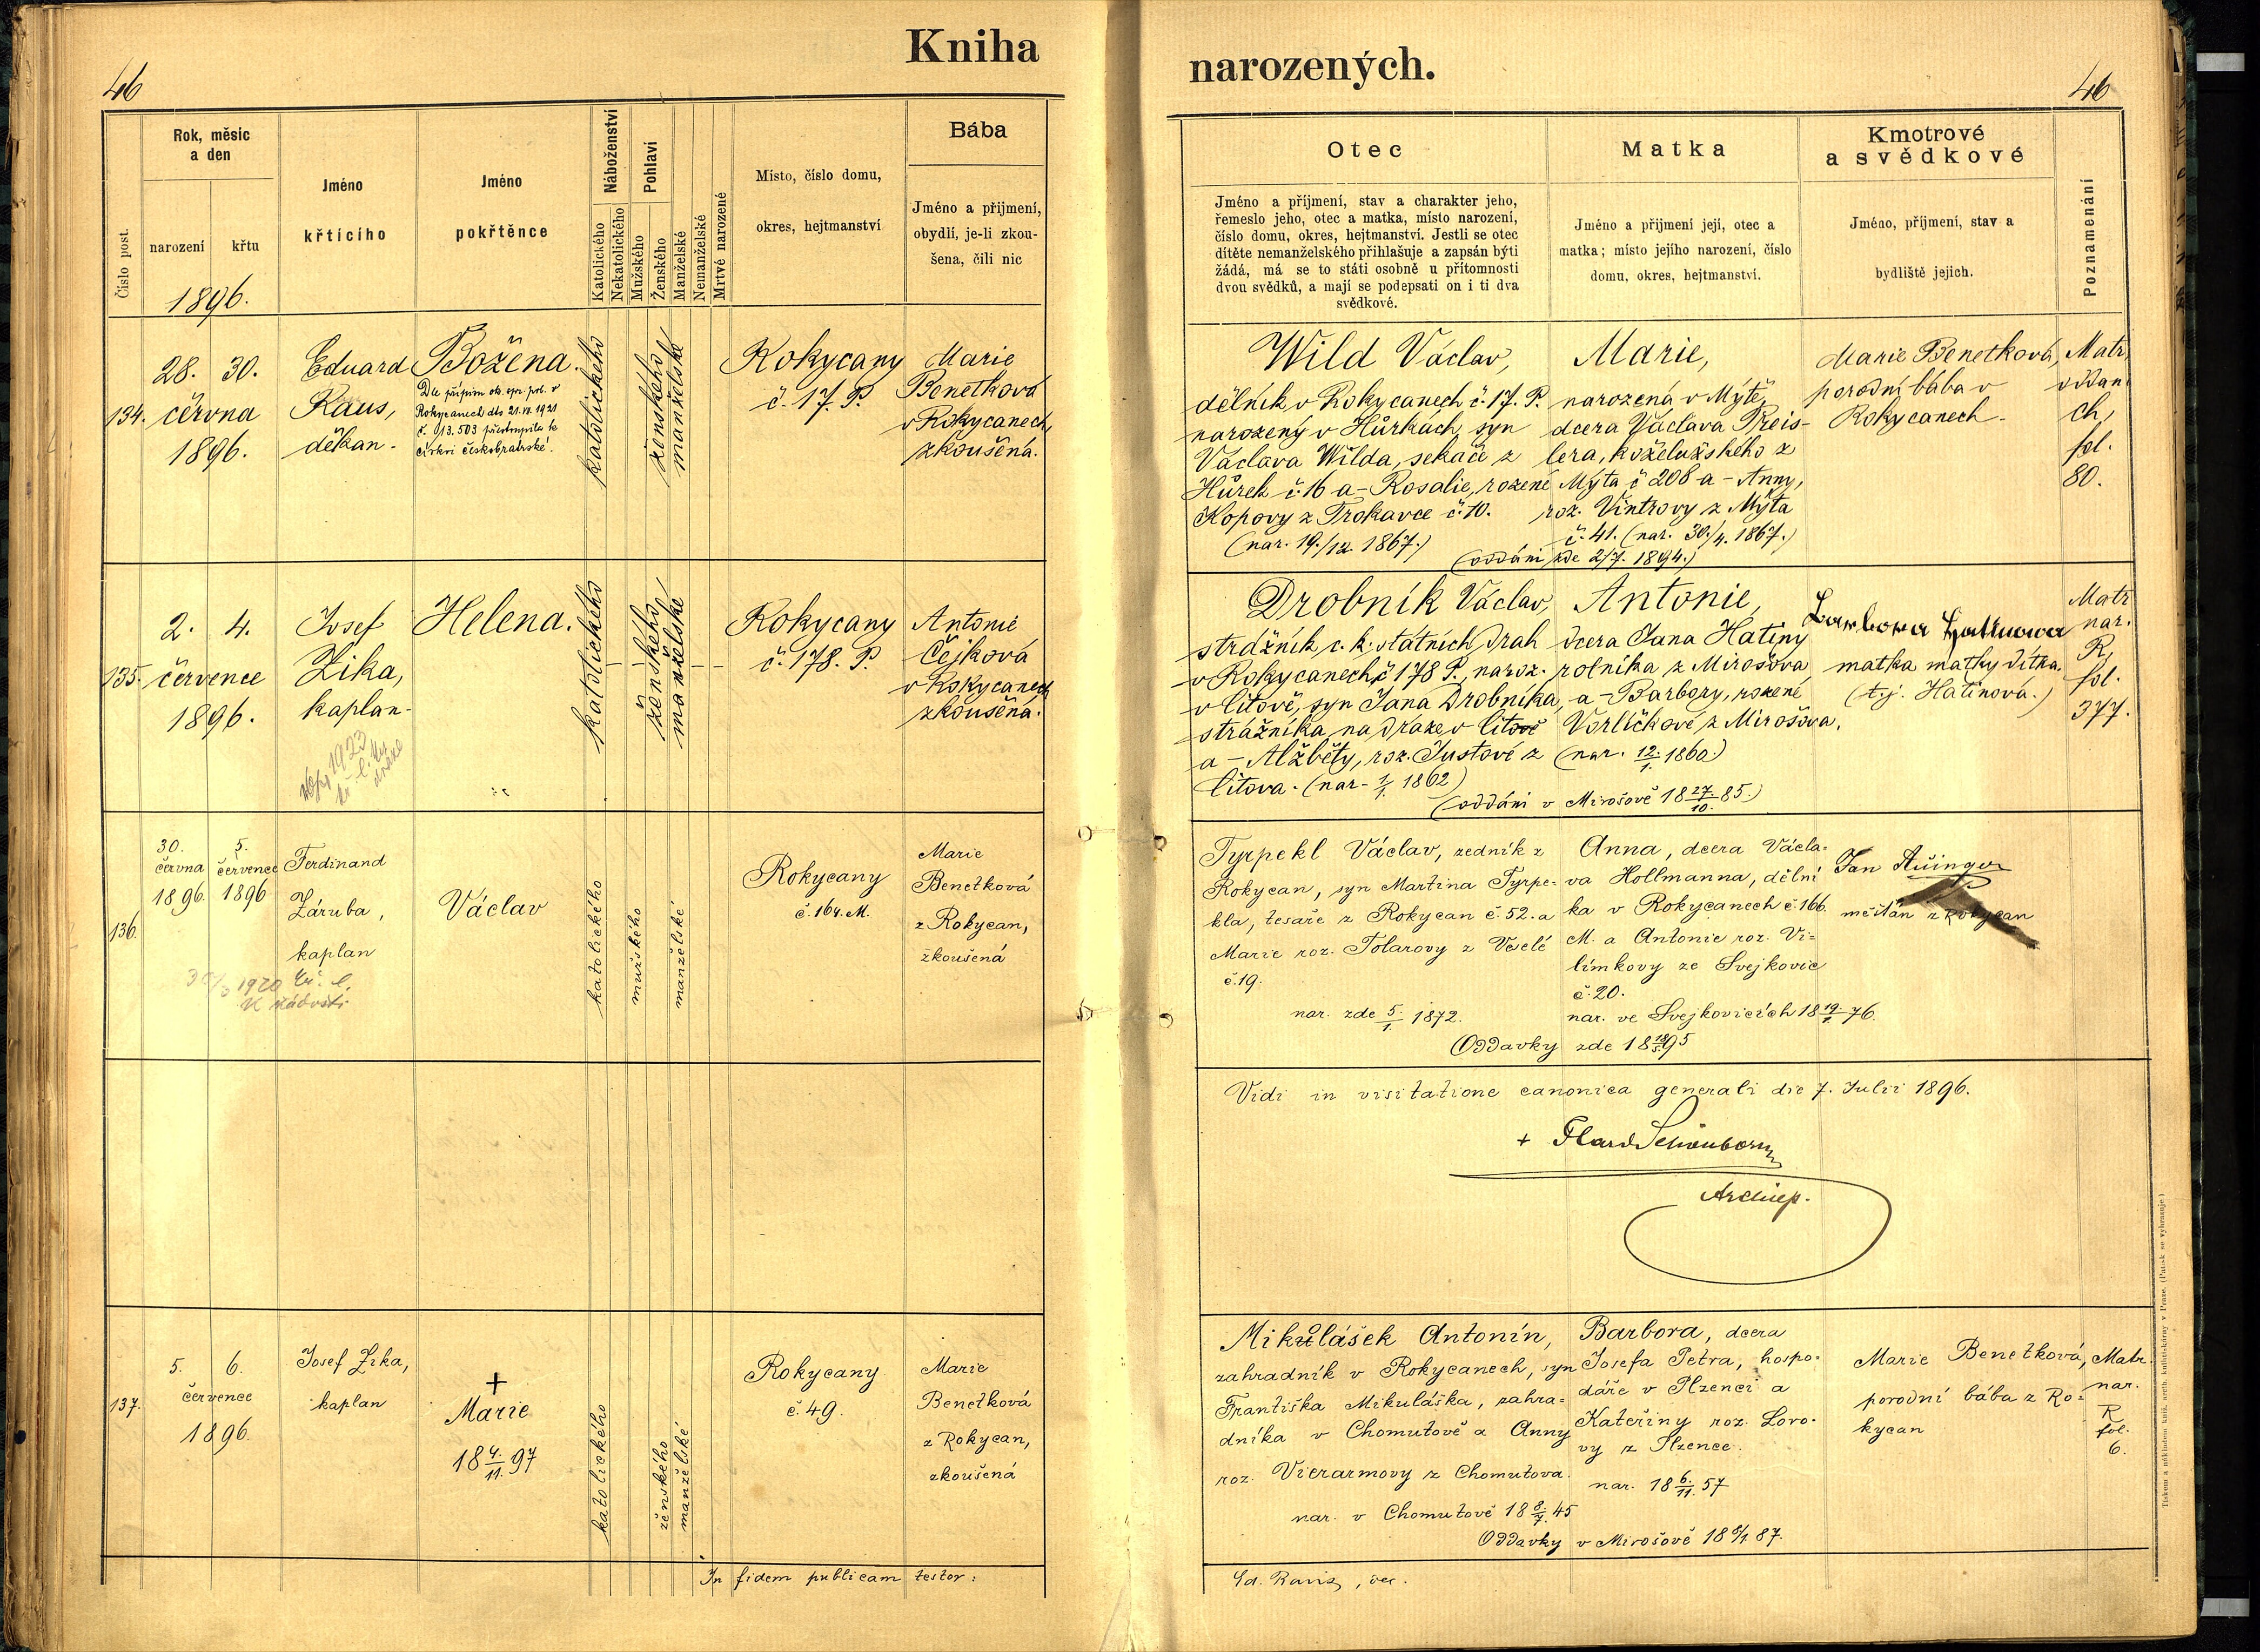 Kniha
narozených.
46
46
Číslo post.
Rok, měsíc
a den
narození
křtu
1896.
Jméno
křtícího
Jméno
pokřtěnce
Náboženství
Katolického
Nekatolického
Pohlaví
Mužského
Ženského
Manželské
Nemanželské
Mrtvě narozené
Místo, číslo domu,
okres, hejtmanství
Bába
Jméno a přijmení,
obydlí, je-li zkou-
šena, čili nic
Otec
Jméno a příjmení, stav a charakter jeho,
řemeslo jeho, otec a matka, místo narození,
číslo domu, okres, hejtmanství. Jestli se otec
dítěte nemanželského přihlašuje a zapsán býti
žádá, má se to státi osobně u přítomnosti
dvou svědků, a mají se podepsati on i ti dva
svědkové.
Matka
Jméno a přijmení její, otec a
matka; místo jejího narození, číslo
domu, okres, hejtmanství.
Kmotrové
a svědkové
Jméno, příjmení, stav a
bydliště jejich.
Poznamenání
134.
28. 30.
června
1896.
Eduard
Raus,
děkan.
Božena.
Dle přípisu ok. spr. pol. v
Rokycanech dto 21.VI. 1921
č. 13.503 přestoupila k
církvi českobratrské.
katolického
ženského
manželské
Rokycany
č. 17. P.
Marie
Benetková
v Rokycanech,
zkoušená.
Wild Václav,
dělník v Rokycanech č. 17. P.
narozený v Hůrkách, syn
Václava Wilda, sekáče z
Hůrek č. 16 a - Rosalie, rozené
Kopovy z Trokavce č. 10.
(nar. 19./12. 1867.)
Marie,
narozená v Mýtě,
dcera Václava Preis-
lera, koželužského z
Mýta č 208 a - Anny,
roz. Vintrovy z Mýta
č. 41. (nar. 30./4. 1867.)
(oddáni zde 2/7. 1894.)
Marie Benetková,
porodní bába v
Rokycanech.
Matr.
oddan.
ch,
fol.
80.
135.
2. 4.
července
1896.
Josef
Zika,
kaplan.
1923
Helena.
katolického
ženského
manželské
Rokycany
č. 178. P.
Antonie
Čejková
v Rokycanech
zkoušená.
Drobník Václav,
strážník c. k. státních drah
v Rokycanech, č 178 P., naroz.
v Litově, syn Jana Drobníka,
strážníka na dráze v Litově
a - Alžběty, roz. Justové z
Litova. (nar. 1/1. 1862)
Antonie,
dcera Jana Hatiny
rolníka z Mirošova
a - Barbory, rozené
Vorlíčkové z Mirošova.
(nar. 12./1. 1860.)
(oddáni v Mirošově 18 27./10. 85.)
Barbora Hatinova
matka matky dítka.
(t.j. Hatinová.)
Matr.
nar.
R,
fol.
377.
136.
30.
června
1896.
5.
července
1896
Ferdinand
Záruba,
kaplan
1920 kř. l.
k žádosti.
Václav
katolického
mužského
manželské
Rokycany
č. 164. M.
Marie
Benetková
z Rokycan,
zkoušená
Tyrpekl Václav, zedník z
Rokycan, syn Martina Tyrpe=
kla, tesaře z Rokycan č. 52. a
Marie roz. Tolarovy z Veselé
č. 19.
nar. zde 5./1. 1872.
Anna, dcera Václa=
va Hollmanna, dělní
ka v Rokycanech č. 166.
M. a Antonie roz. Vi=
límkovy ze Svejkovic
č. 20.
nar. ve Svejkovicích 18 19/1. 76.
Oddavky zde 18 18/5. 95
Jan
měšťan z Rokycan
Vidi in visitatione canonica generali die 7. Julii 1896.
+ F Card Schönborn
Archiep.
137.
5. 6.
července
1896.
Josef Zika,
kaplan
+
Marie
18 4./11. 97
katolického
ženského
manželské
Rokycany
č. 49.
Marie
Benetková
z Rokycan,
zkoušená
Mikulášek Antonín,
zahradník v Rokycanech, syn
Františka Mikuláška, zahra=
dníka v Chomutově a Anny
roz. Vierarmovy z Chomutova.
nar. v Chomutově 18 8./7. 45
Barbora, dcera
Josefa Petra, hospo=
dáře v Plzenci a
Kateřiny roz. Loro-
vy z Plzence.
nar. 18 6./11. 57
Oddavky v Mirošově 18 8/1 87.
Marie Benetková,
porodní bába z Ro=
kycan
Matr.
nar.
R
fol.
6.
In fidem publicam testor: